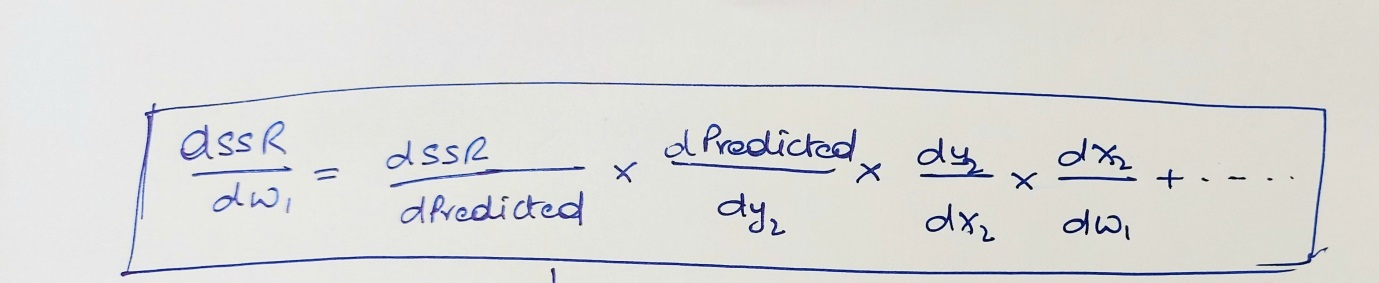 dSSR/dw₁ = dSSR/dPredicted × dPredicted/dy₂ × dy₂/dx₂ × dx₂/dw₁ + .....